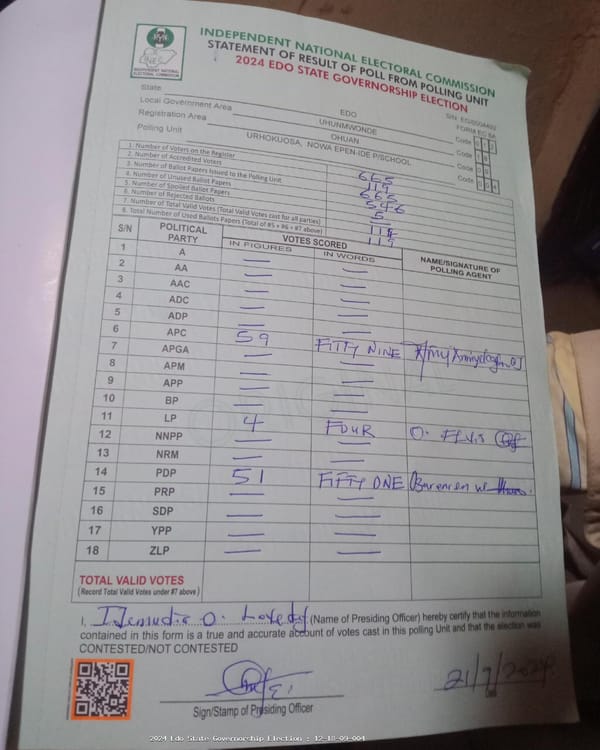 INEC
INDEPENDENT NATIONAL ELECTORAL COMMISSION
INDEPENDENT NATIONAL ELECTORAL COMMISSION
STATEMENT OF RESULT OF POLL FROM POLLING UNIT
2024 EDO STATE GOVERNORSHIP ELECTION
FORM EC 8A
State EDO Code 1 2
Local Government Area UHUNMWONDE Code 1 8
Registration Area OHUAN Code 0 9
Polling Unit URHOKUOSA, NOWA EPEN-IDE P/SCHOOL Code 0 0 4
1. Number of Voters on the Register 665
2. Number of Accredited Voters 119
3. Number of Ballot Papers Issued to the Polling Unit 665
4. Number of Unused Ballot Papers 546
5. Number of Spoiled Ballot Papers 5
6. Number of Rejected Ballots —
7. Number of Total Valid Votes (Total Valid Votes cast for all parties) 114
8. Total Number of Used Ballots Papers (Total of #5 + #6 + #7 above) 119
S/N POLITICAL PARTY VOTES SCORED NAME/SIGNATURE OF POLLING AGENT
IN FIGURES IN WORDS
1 A — —
2 AA — —
3 AAC — —
4 ADC — —
5 ADP — —
6 APC 59 FIFTY NINE
7 APGA — —
8 APM — —
9 APP — —
10 BP — —
11 LP 4 FOUR O. ELVIS
12 NNPP — —
13 NRM — —
14 PDP 51 FIFTY ONE
15 PRP — —
16 SDP — —
17 YPP — —
18 ZLP — —
TOTAL VALID VOTES
(Record Total Valid Votes under #7 above)
I, O. (Name of Presiding Officer) hereby certify that the information
contained in this form is a true and accurate account of votes cast in this polling Unit and that the election was
CONTESTED/NOT CONTESTED
21/9/2024
Sign/Stamp of Presiding Officer
2024 Edo State Governorship Election : 12-18-09-004